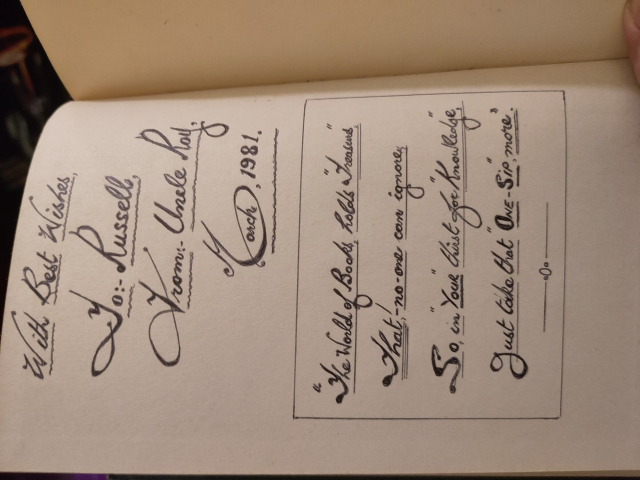 With Best Wishes,
To:- Russell,
From:- Uncle Ray,
March, 1981.
"The World of Books, holds "Treasure"
That,'-no-one can ignore,
So, in "Your" thirst for "Knowledge",
Just take that "ONE-SIP, more".